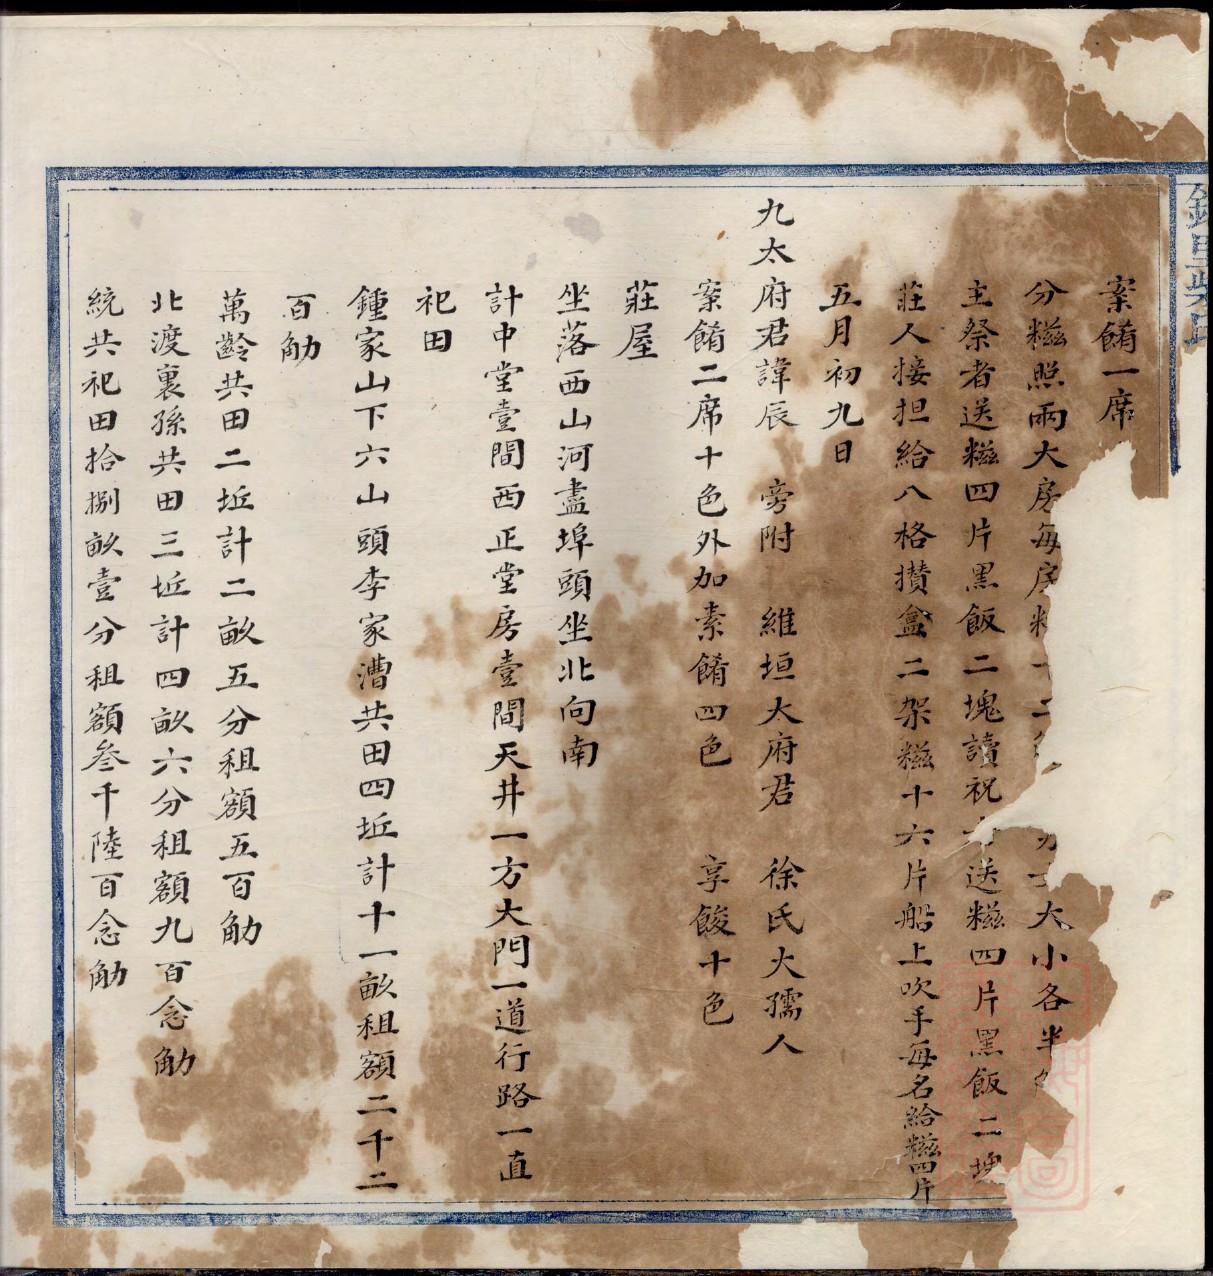 案餚一席
分糍照兩大房每房 大小各半
主祭者送糍四片黑飯二塊讀祝 送糍四片黑飯二塊
莊人接担給八格攢盒二架糍十六片船上吹手每名給糍四片
五月初九日
九太府君諱辰 旁附 維垣太府君 徐氏大孺人
案餚二席十色外加素餚四色 享餕十色
莊屋
坐落西山河盡埠頭坐北向南
計中堂壹間西正堂房壹間天井一方大門一道行路一直
祀田
鍾家山下六山頭李家漕共田四坵計十一畝租額二千二
百觔
萬齡共田二坵計二畝五分租額五百觔
北渡裏孫共田三坵計四畝六分租額九百念觔
統共祀田拾捌畝壹分租額叄千陸百念觔